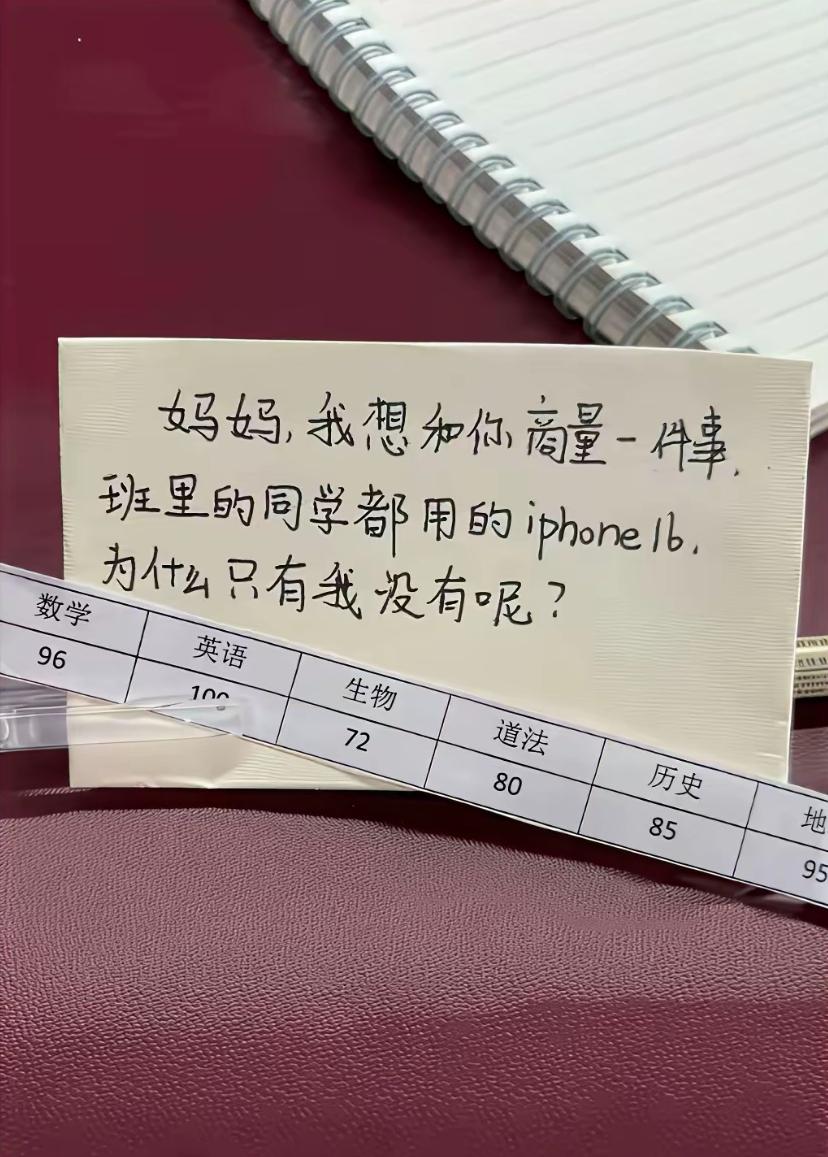 妈妈,我想和你商量一件事,
班里的同学都用的iphone16,
为什么只有我没有呢?
数学 英语 生物 道法 历史 地
96 100 72 80 85 95